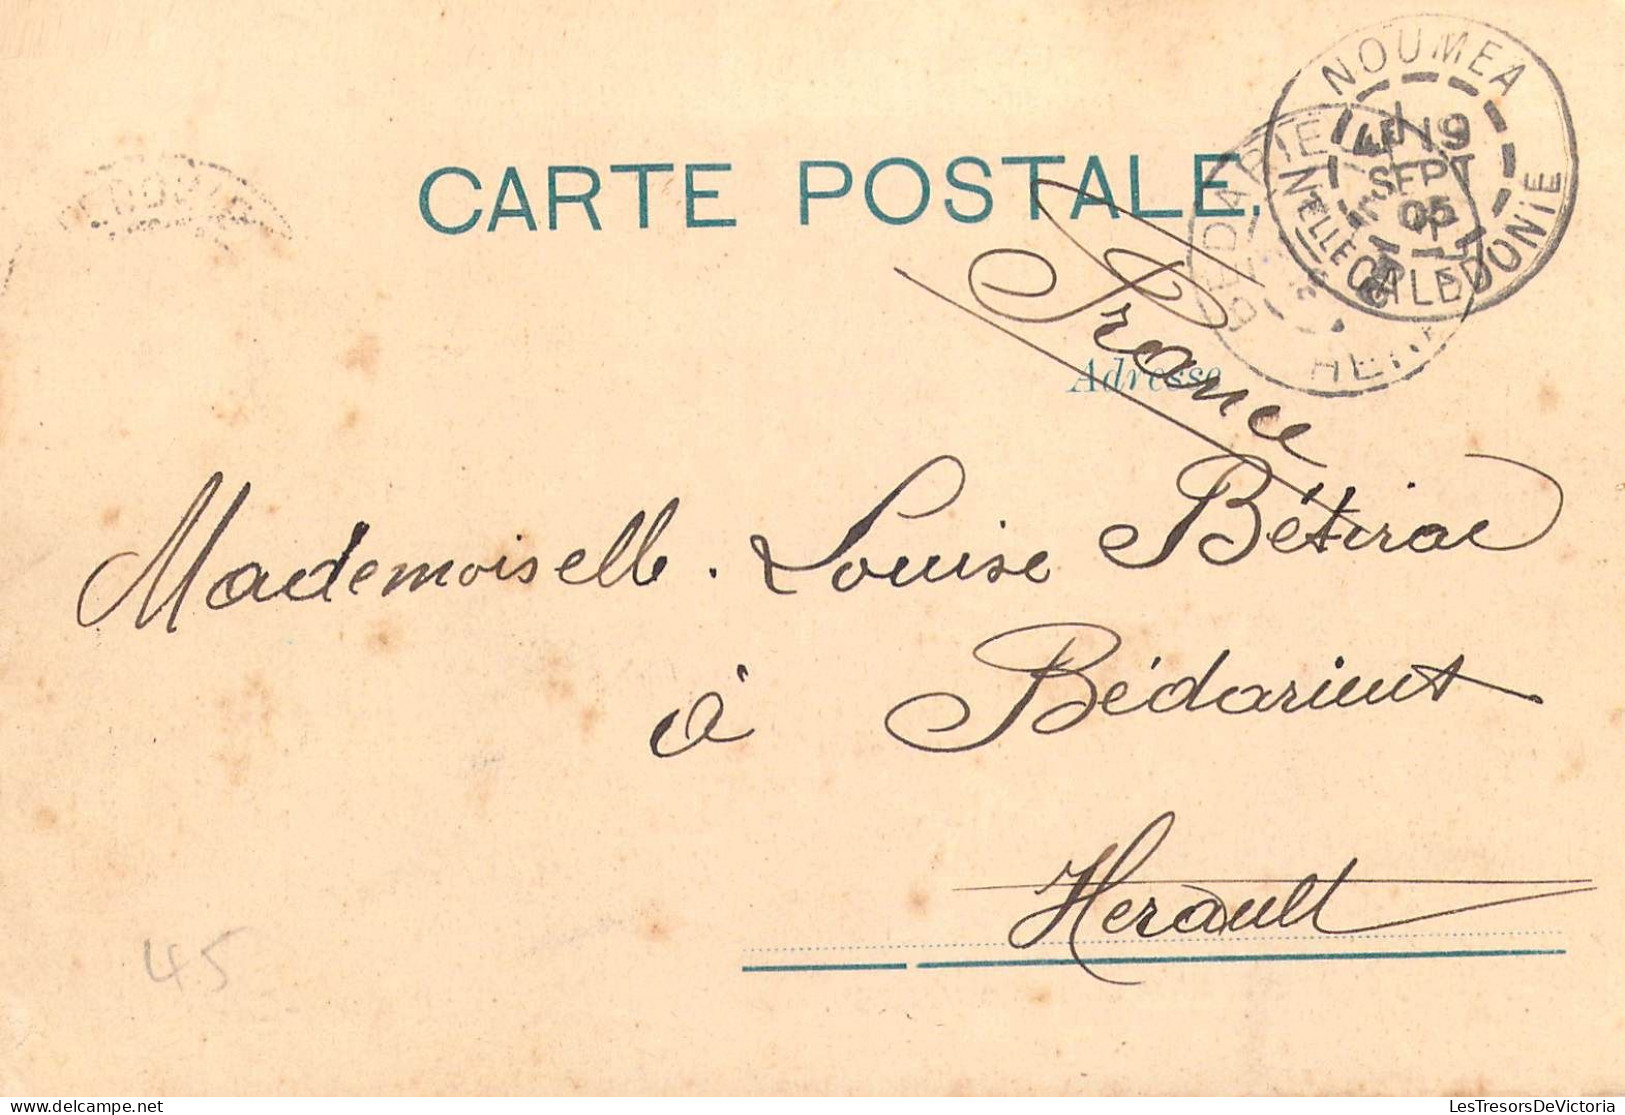 CARTE POSTALE.
NOUMEA
19
SEPT
05
NELLE CALEDONIE
BEDARIE
HER
France
Adresse
Mademoiselle. Louise Bétirac
à Bédarieux
Herault
45
LesTresorsDeVictoria